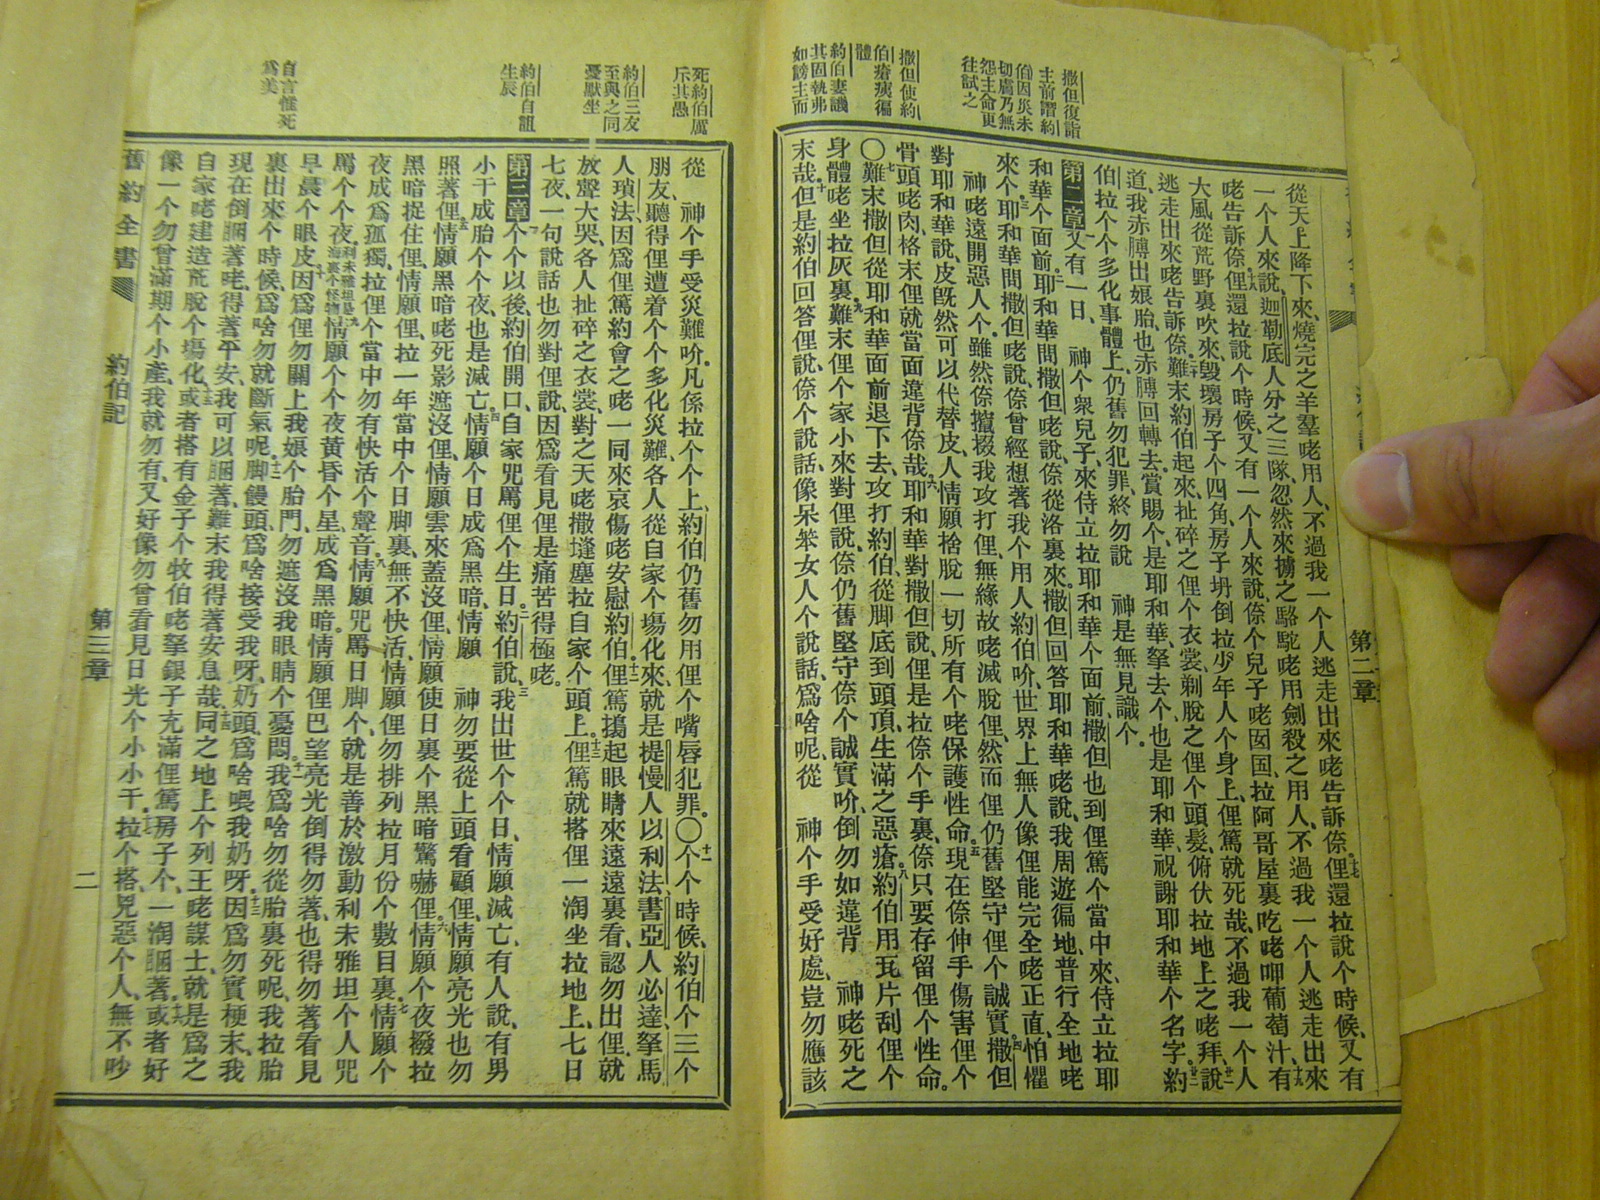 撒但復詣
主前謂約
伯因災未
切膚乃無
怨主命更
往試之
撒但使約
伯瘡痍徧
體
約伯妻譏
其固執弗
如謗主而
死約伯厲
斥其愚
約伯三友
至與之同
憂默坐
約伯自詛
生辰
自言惟死
爲美
第二章
從天上降下來、燒完之羊羣咾用人、不過我一个人逃走出來咾告訴倷。十七俚還拉說个時候、又有
一个人來說、迦勒底人分之三隊、忽然來擄之駱駝咾用劍殺之用人、不過我一个人逃走出來
咾告訴倷。十八俚還拉說个時候、又有一个人來說、倷个兒子咾囡囝、拉阿哥屋裏吃咾呷葡萄汁、十九有
大風從荒野裏吹來、毀壞房子个四角、房子坍倒拉少年人个身上、俚篤就死哉、不過我一个人
逃走出來咾告訴倷。二十難末約伯起來、扯碎之俚个衣裳、剃脫之俚个頭髮、俯伏拉地上之咾拜、廿一說
道、我赤膊出娘胎、也赤膊回轉去、賞賜个是耶和華、拏去个也是耶和華、祝謝耶和華个名字。廿二約
伯拉个个多化事體上、仍舊勿犯罪、終勿說　神是無見識个。
第二章　一又有一日、　神个衆兒子、來侍立拉耶和華个面前、撒但也到俚篤个當中來、侍立拉耶
和華个面前。二耶和華問撒但咾說、倷從洛裏來。撒但回答耶和華咾說、我周遊徧地、普行全地咾
來个。三耶和華問撒但咾說、倷曾經想著我个用人約伯吤、世界上無人像俚能完全咾正直、怕懼
　神咾遠開惡人个。雖然倷攛掇我攻打俚、無緣故咾滅脫俚、然而俚仍舊堅守俚个誠實。四撒但
對耶和華說、皮旣然可以代替皮、人情願捨脫一切所有个咾保護性命。五現在倷伸手傷害俚个
骨頭咾肉、格末俚就當面違背倷哉。六耶和華對撒但說、俚是拉倷个手裏、倷只要存留俚个性命。
〇七難末撒但從耶和華面前退下去、攻打約伯、從脚底到頭頂、生滿之惡瘡。八約伯用瓦片刮俚个
身體咾坐拉灰裏。九難末俚个家小來對俚說、倷仍舊堅守倷个誠實吤、倒勿如違背　神咾死之
末哉。十但是約伯回答俚說、倷个說話、像呆笨女人个說話、爲啥呢、從　神个手受好處、豈勿應該
從　神个手受災難吤。凡係拉个个上、約伯仍舊勿用俚个嘴唇犯罪。〇十一个个時候、約伯个三个
朋友、聽得俚遭着个个多化災難、各人從自家个場化來、就是提慢人以利法、書亞人必達、拏馬
人瑣法、因爲俚篤約會之咾一同來哀傷咾安慰約伯。十二俚篤擡起眼睛來、遠遠裏看、認勿出俚、就
放聲大哭、各人扯碎之衣裳、對之天咾撒埲塵拉自家个頭上。十三俚篤就搭俚一淘坐拉地上、七日
七夜、一句說話也勿對俚說、因爲看見俚是痛苦得極咾。
第三章　一个个以後、約伯開口、自家咒罵俚个生日。二約伯說、三我出世个个日、情願滅亡、有人說、有男
小干成胎个个夜、也是滅亡。四情願个日成爲黑暗、情願　神勿要從上頭看顧俚、情願亮光也勿
照著俚。五情願黑暗咾死影遮沒俚、情願雲來蓋沒俚、情願使日裏个黑暗驚嚇俚。六情願个夜撥拉
黑暗捉住俚、情願俚拉一年當中个日脚裏、無不快活、情願俚勿排列拉月份个數目裏。七情願个
夜成爲孤獨、拉俚个當中勿有快活个聲音。八情願咒罵日脚个、就是善於激動利未雅坦个人咒
罵个个夜。利未雅坦是海裏个怪物九情願个个夜黃昏个星、成爲黑暗、情願俚巴望亮光倒得勿著、也得勿著看見
早晨个眼皮。十因爲俚勿關上我娘个胎門、勿遮沒我眼睛个憂悶。十一我爲啥勿從胎裏死呢、我拉胎
裏出來个時候、爲啥勿就斷氣呢。十二脚饅頭、爲啥接受我呀、奶頭、爲啥喂我奶呀。十三因爲勿實梗末、我
現在倒睏著咾、得著平安、我可以睏著、難末我得著安息哉。十四同之地上个列王咾謀士、就是爲之
自家咾建造荒脫个場化。十五或者搭有金子个牧伯咾拏銀子充滿俚篤房子个、一淘睏著。十六或者好
像一个勿曾滿期个小產、我就勿有、又好像勿曾看見日光个小小干。十七拉个搭、兇惡个人、無不吵
舊約全書
約伯記
第三章
二